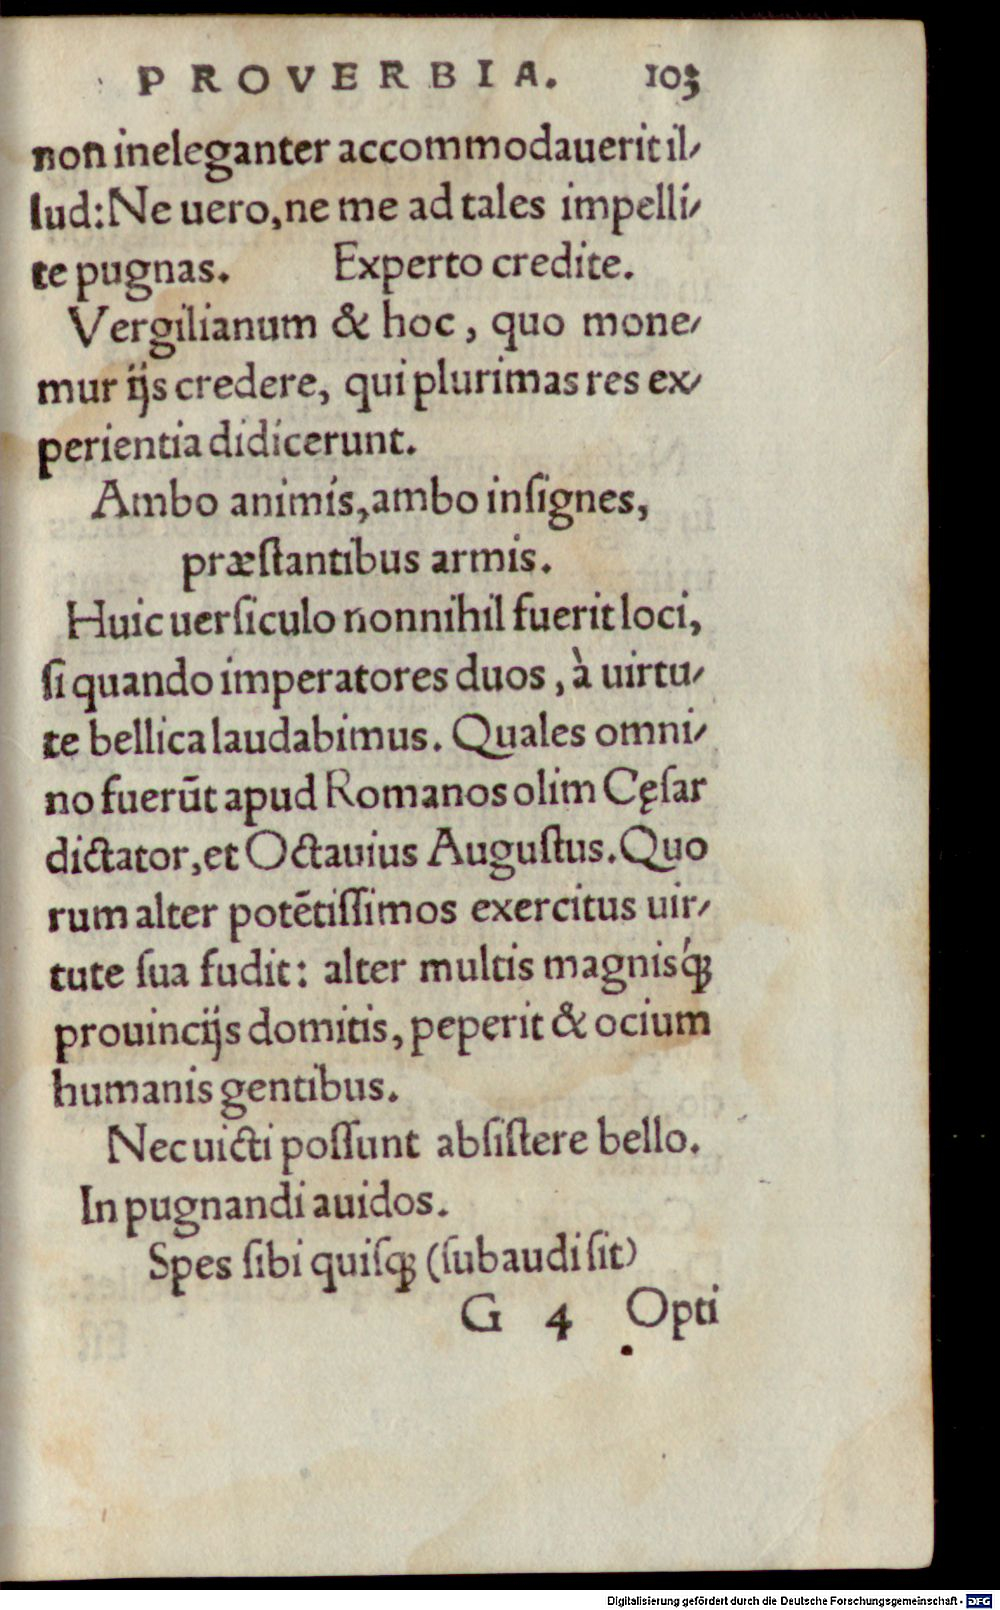 PROVERBIA. 103
non ineleganter accommodauerit il-
lud: Ne uero, ne me ad tales impelli-
te pugnas. Experto credite.
Vergilianum & hoc, quo mone-
mur ijs credere, qui plurimas res ex-
perientia didicerunt.
Ambo animis, ambo insignes,
præstantibus armis.
Huic uersiculo nonnihil fuerit loci,
si quando imperatores duos, à uirtu-
te bellica laudabimus. Quales omni-
no fuerũt apud Romanos olim Cęsar
dictator, et Octauius Augustus. Quo
rum alter potẽtissimos exercitus uir-
tute sua fudit: alter multis magnisq́;
prouincijs domitis, peperit & ocium
humanis gentibus.
Nec uicti possunt absistere bello.
In pugnandi auidos.
Spes sibi quisq; (subaudi sit)
G 4 Opti
Digitalisierung gefördert durch die Deutsche Forschungsgemeinschaft - DFG